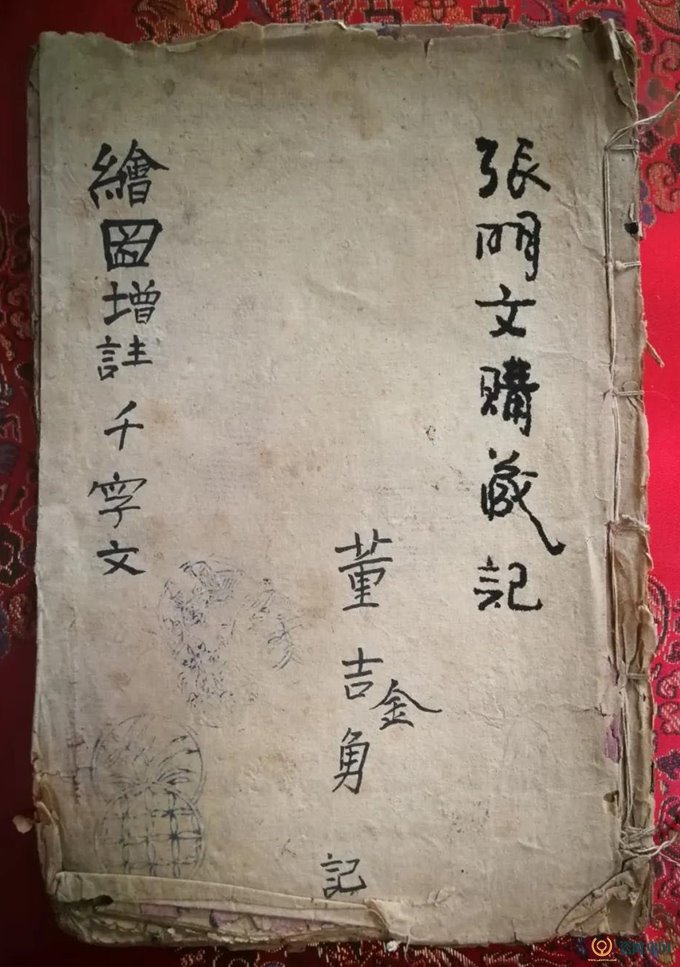 張明文購藏記
董吉金勇記
繪圖增註千字文